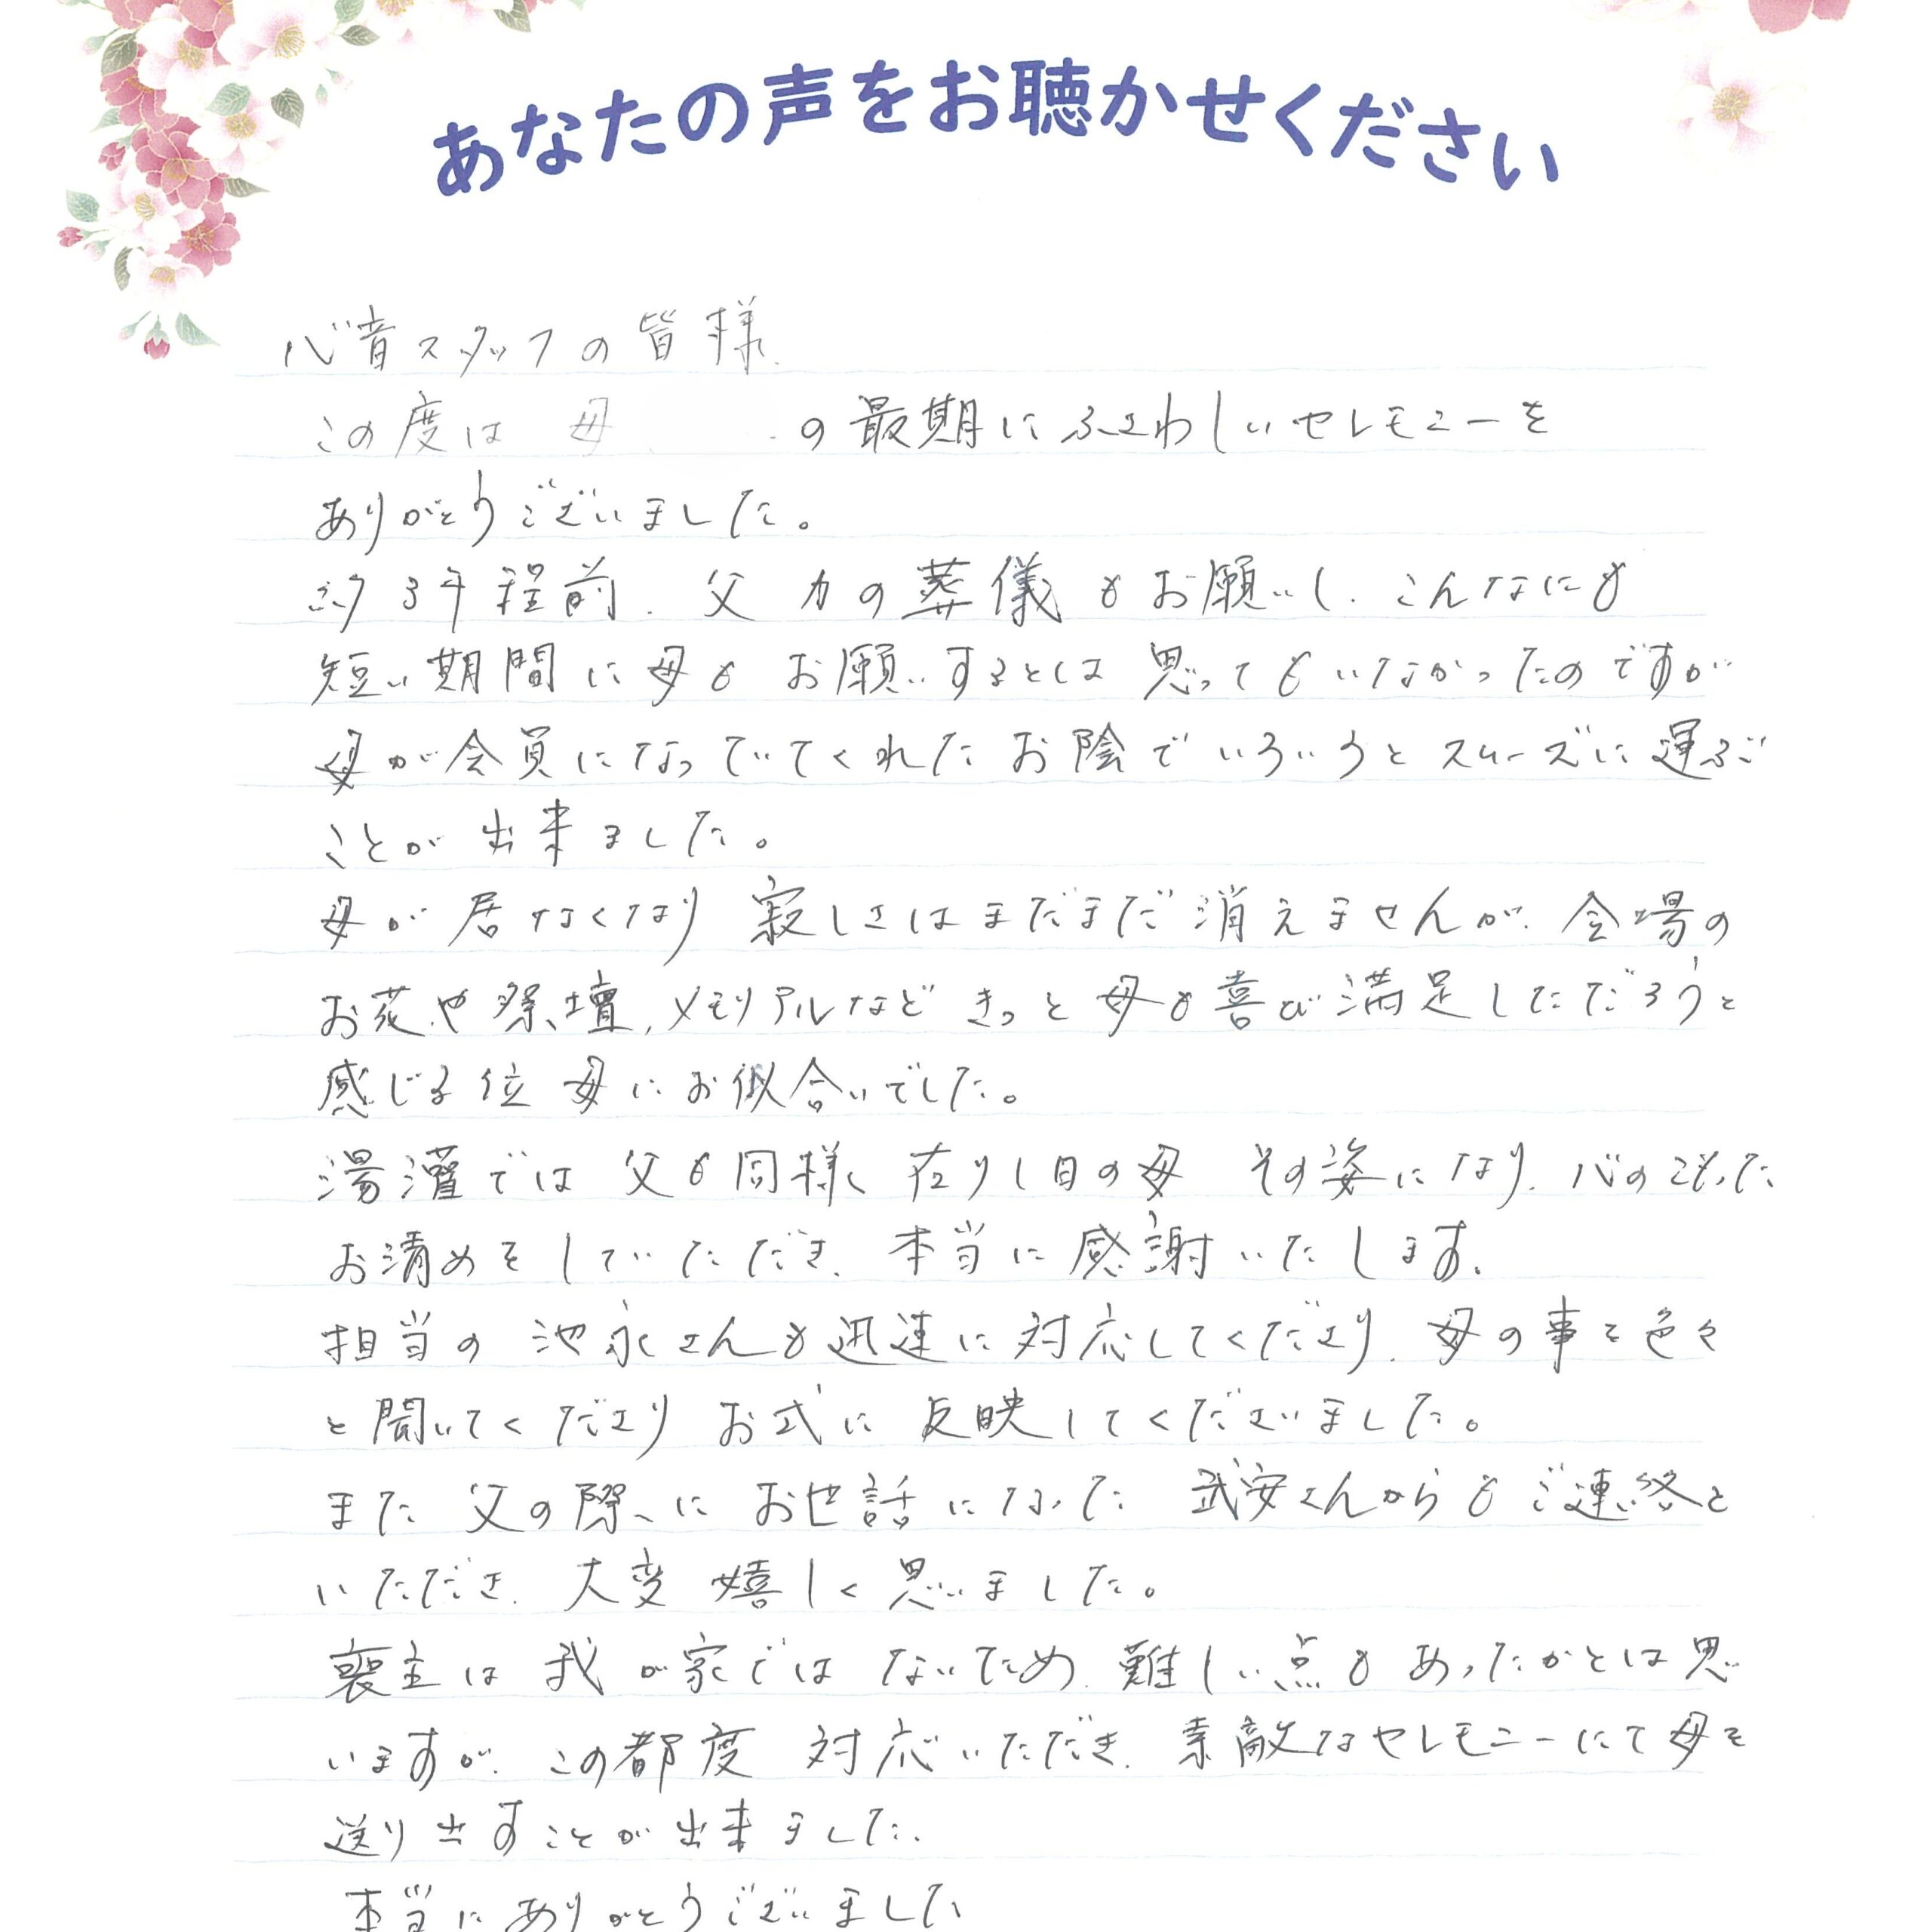 あなたの声をお聴かせください
心音スタッフの皆様
この度は 母 の最期にふさわしいセレモニーを
ありがとうございました。
約3年程前、父 力の葬儀もお願いし、こんなにも
短い期間に母も お願いするとは思ってもいなかったのですが
母が会員になっていてくれたお陰でいろいろとスムーズに運ぶ
ことが出来ました。
母が居なくなり 寂しさはまだまだ消えませんが、会場の
お花や祭壇、メモリアルなど きっと母も喜び満足しただろうと
感じる位 母にお似合いでした。
湯灌では 父も同様 在りし日の母 その姿になり、心のこもった
お清めをしていただき、本当に感謝いたします。
担当の 池永さんも迅速に対応してくださり、母の事を色々
と聞いてくださり お式に 反映してくださいました。
また 父の際に お世話になった 武安さんからもご連絡を
いただき、大変 嬉しく思いました。
喪主は 我が家では ないため、難しい点も あったかとは思
いますが、この都度 対応いただき、素敵なセレモニーにて母を
送り出すことが出来ました。
本当にありがとうございました